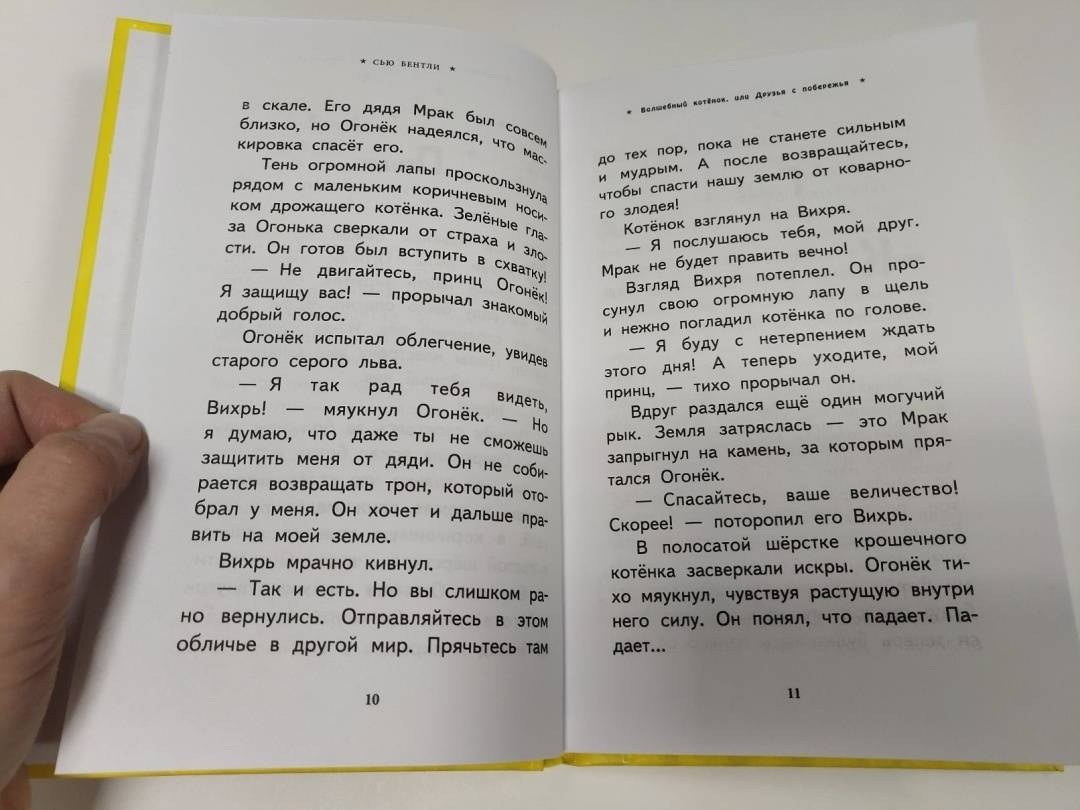 ★ СЬЮ БЕНТЛИ ★
в скале. Его дядя Мрак был совсем
близко, но Огонёк надеялся, что мас-
кировка спасёт его.
Тень огромной лапы проскользнула
рядом с маленьким коричневым носи-
ком дрожащего котёнка. Зелёные гла-
за Огонька сверкали от страха и зло-
сти. Он готов был вступить в схватку!
— Не двигайтесь, принц Огонёк!
Я защищу вас! — прорычал знакомый
добрый голос.
Огонёк испытал облегчение, увидев
старого серого льва.
— Я так рад тебя видеть,
Вихрь! — мяукнул Огонёк. — Но
я думаю, что даже ты не сможешь
защитить меня от дяди. Он не соби-
рается возвращать трон, который ото-
брал у меня. Он хочет и дальше пра-
вить на моей земле.
Вихрь мрачно кивнул.
— Так и есть. Но вы слишком ра-
но вернулись. Отправляйтесь в этом
обличье в другой мир. Прячьтесь там
10
★ Волшебный котёнок, или Друзья с побережья ★
до тех пор, пока не станете сильным
и мудрым. А после возвращайтесь,
чтобы спасти нашу землю от коварно-
го злодея!
Котёнок взглянул на Вихря.
— Я послушаюсь тебя, мой друг.
Мрак не будет править вечно!
Взгляд Вихря потеплел. Он про-
сунул свою огромную лапу в щель
и нежно погладил котёнка по голове.
— Я буду с нетерпением ждать
этого дня! А теперь уходите, мой
принц, — тихо прорычал он.
Вдруг раздался ещё один могучий
рык. Земля затряслась — это Мрак
запрыгнул на камень, за которым пря-
тался Огонёк.
— Спасайтесь, ваше величество!
Скорее! — поторопил его Вихрь.
В полосатой шёрстке крошечного
котёнка засверкали искры. Огонёк ти-
хо мяукнул, чувствуя растущую внутри
него силу. Он понял, что падает. Па-
дает...
11